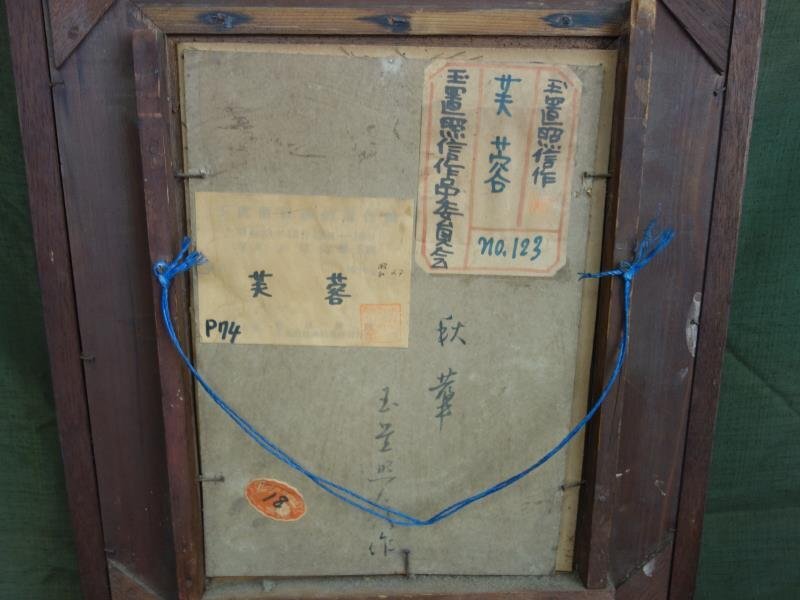 玉置照信作
芙蓉
no.123
玉置照信作品委員会
芙蓉
P74
秋華
玉置照信作
18